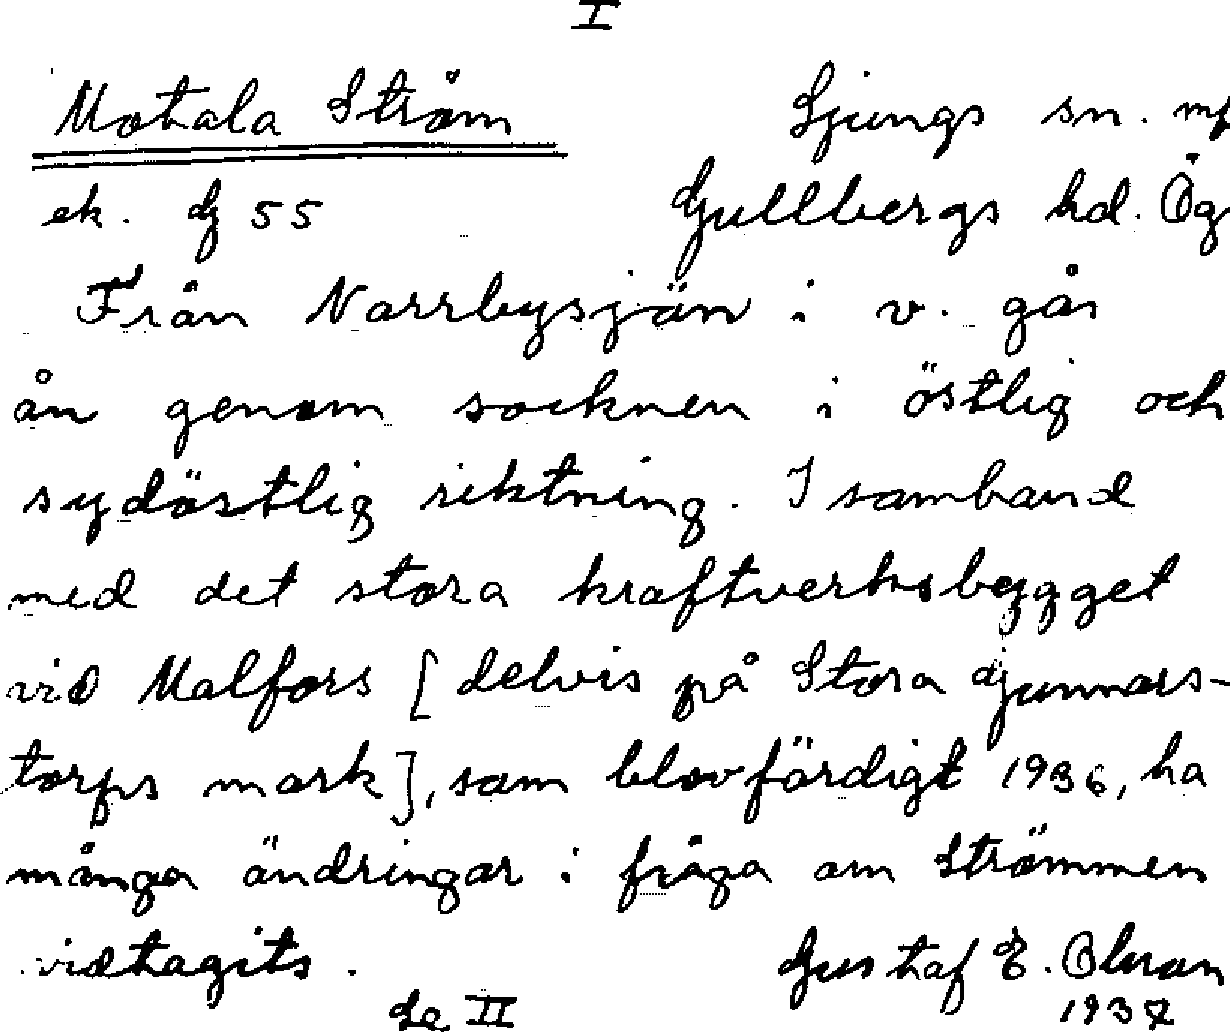 I
Motala Ström Ljungs sn.
ek. G 55 Gullbergs hd. Ög
Från Norrbysjön i v. går
ån genom socknen i östlig och
sydöstlig riktning. I samband
med det stora kraftverksbygget
vid Malfors [delvis på Stora Gunnars-
torps mark], som blev färdigt 1936, ha
många ändringar i fråga om Strömmen
vidtagits. Gustaf E. Olsson
Se II 1937